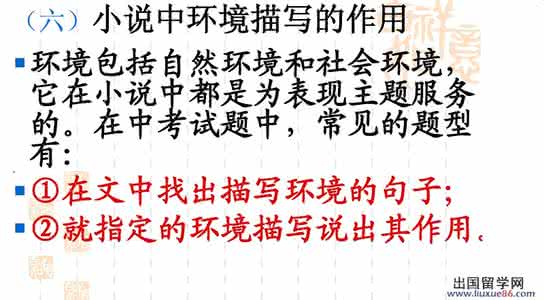 （六）小说中环境描写的作用
环境包括自然环境和社会环境，
它在小说中都是为表现主题服务
的。在中考试题中，常见的题型
有：
①在文中找出描写环境的句子；
②就指定的环境描写说出其作用。
出国留学网
www.liuxue86.com